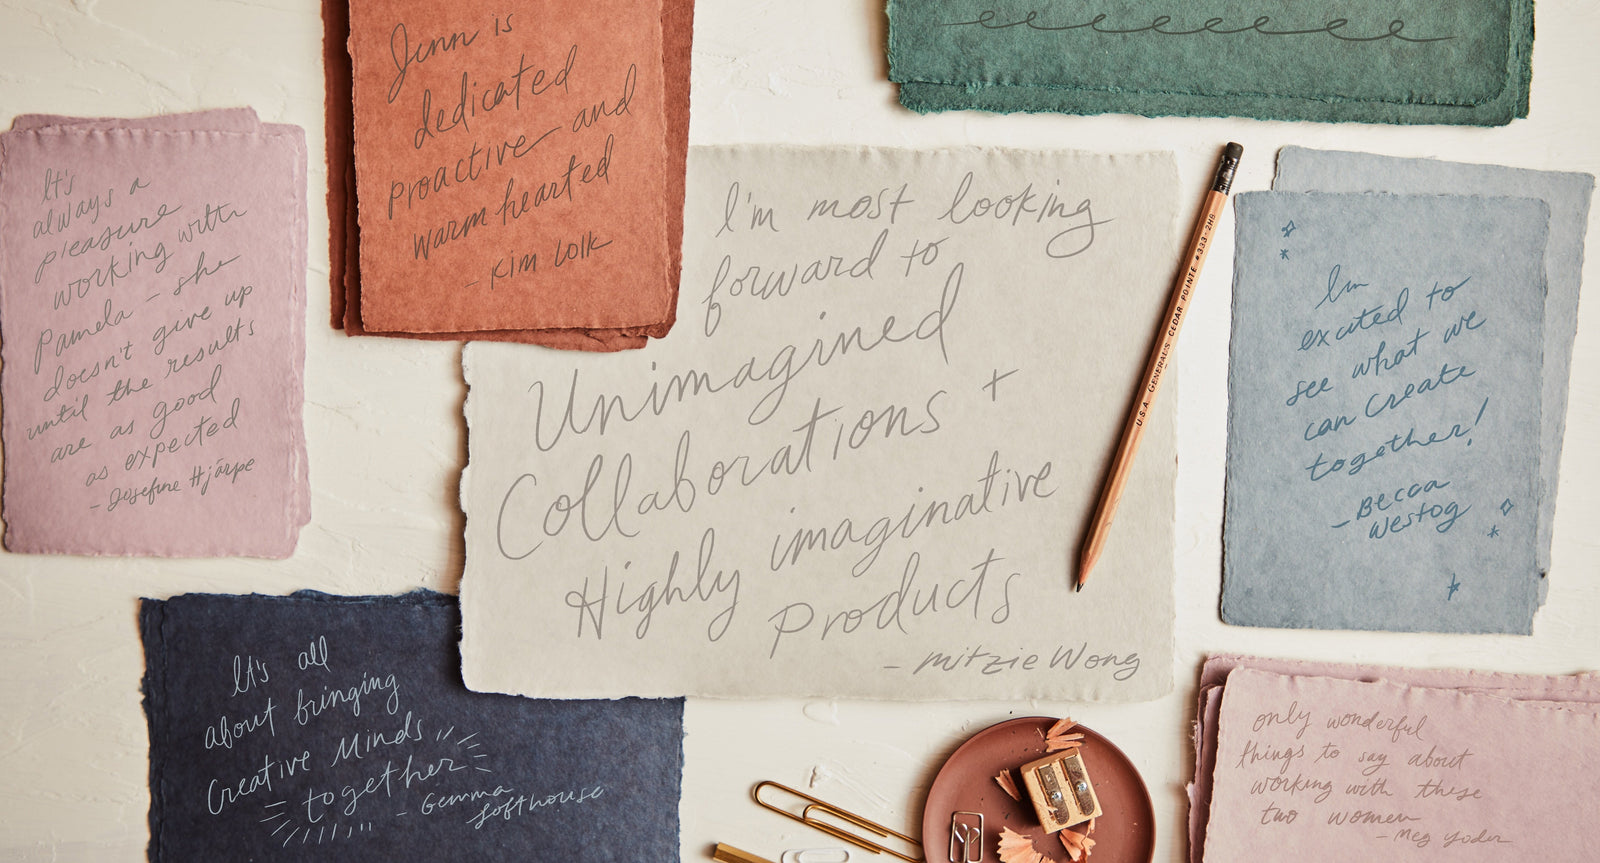 It's
always a
pleasure
working with
Pamela – she
doesn't give up
until the results
are as good
as expected
– Josefine Hjärpe
Jenn is
dedicated
proactive and
warm hearted
– Kim Lolk
I'm most looking
forward to
Unimagined
Collaborations +
Highly imaginative
Products
– Mitzie Wong
U.S.A. GENERAL'S CEDAR POINTE #333-2HB
I'm
excited to
see what we
can create
together!
– Becca
Westog
It's all
about bringing
Creative Minds
together
– Gemma
Softhouse
only wonderful
things to say about
working with these
two women
– Meg Yoder